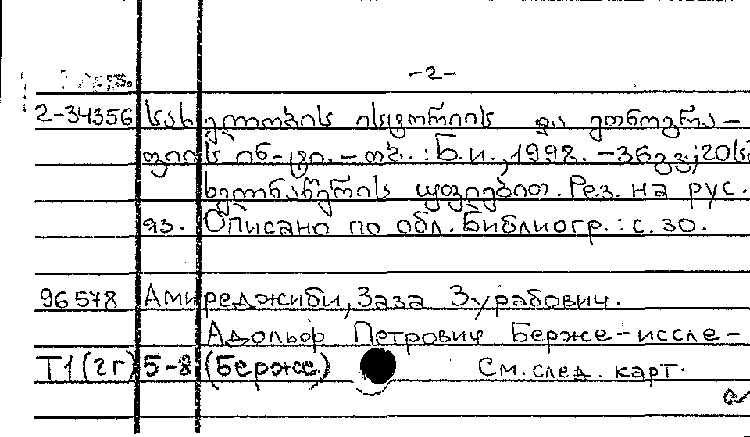 -2-
2-34356 სახელობის ისტორიის და ეთნოგრა-
ფიის ინ-ტი. - თბ. : Б.и., 1992. - 36 გვ; 20 სმ
ხელნაწერის უფლებით. Рез. на рус.
яз. Описано по обл. Библиогр.: с. 30.
96578 Амиреджиби, Заза Зурабович.
Адольф Петрович Берже - иссле-
Т1(2г) 5-8 (Берже) См. след. карт.